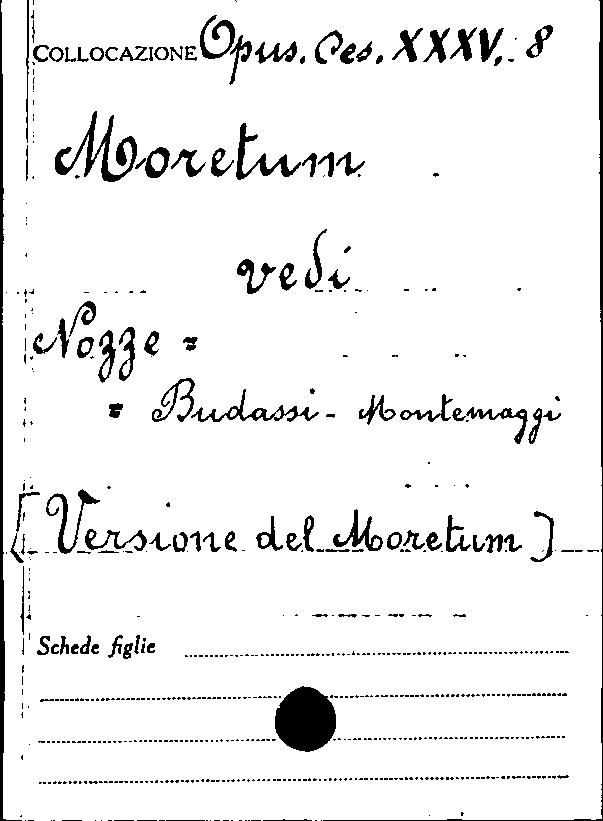 COLLOCAZIONE Opus. Ces. XXXV. 8
Moretum
vedi
Nozze =
= Budassi - Montemaggi
[Versione del Moretum]
Schede figlie